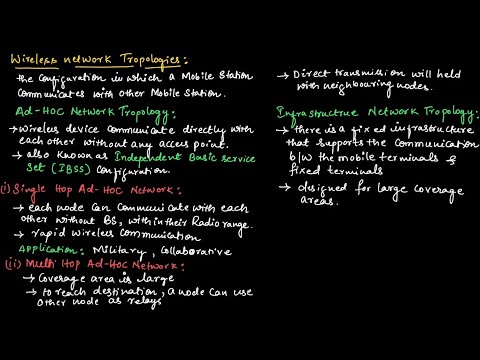 Wireless network Tropologies:
the Configuration in which a Mobile Station
Communicates with other Mobile Station.
Ad-HOC Network Tropology:
→ Wireless device Communicate directly with
each other without any access point.
→ also known as Independent Basic service
Set (IBSS) Configuration.
(i) Single Hop Ad-HOC Network:
→ each node Can Communicate with each
other without BS, within their Radio range.
→ rapid wireless Communication
Application: Military, Collaborative
(ii) Multi Hop Ad-HOC Network:
→ Coverage area is large
→ to reach destination, a node Can use
other node as relays
→ Direct transmission will held
with neighbouring nodes.
Infrastructrue Network Tropology:
→ there is a fixed infrastructure
that supports the Communication
b/w the mobile terminals &
fixed terminals
→ designed for large coverage
areas.